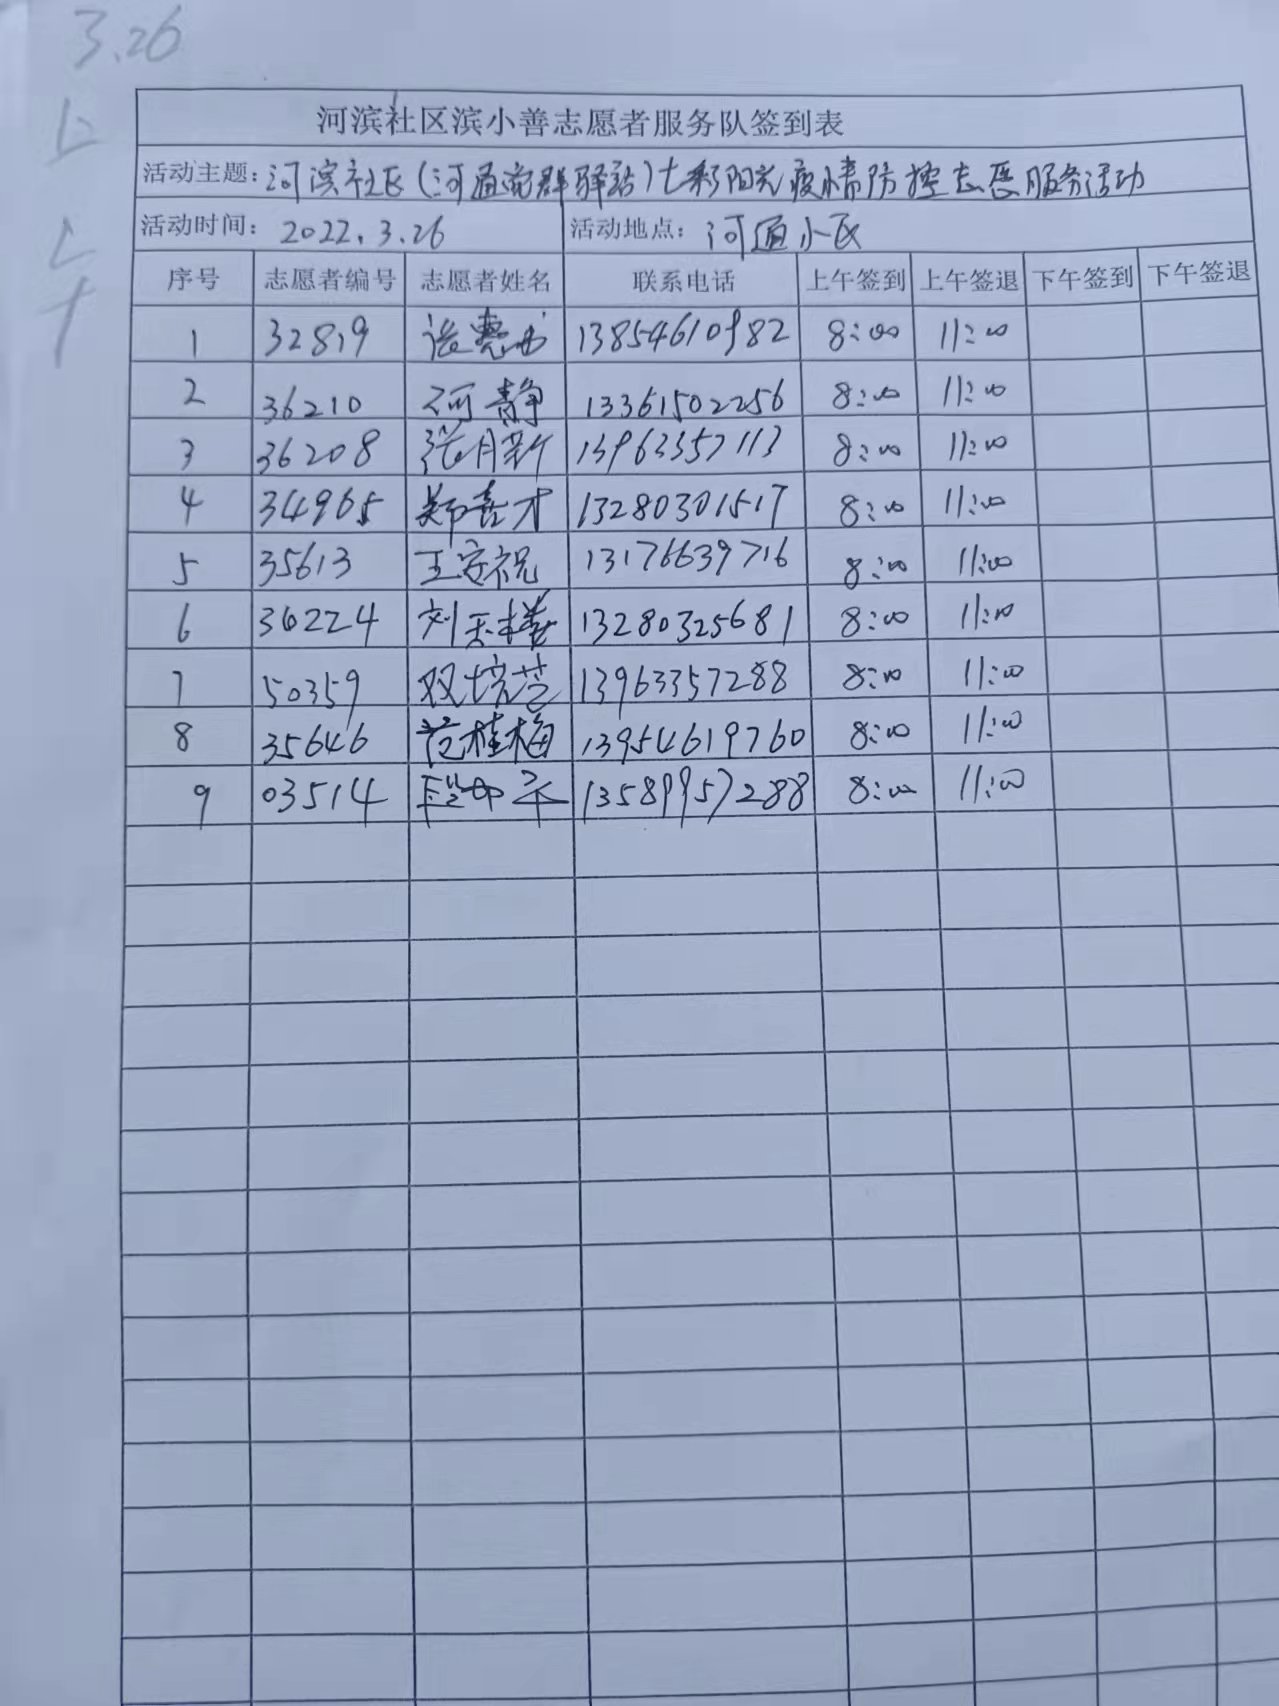 3.26
河滨社区滨小善志愿者服务队签到表
活动主题: 河滨社区(河通党群驿站)七彩阳光疫情防控志愿服务活动
活动时间: 2022.3.26 活动地点: 河通小区
序号 志愿者编号 志愿者姓名 联系电话 上午签到 上午签退 下午签到 下午签退
1 32819 13854610982 8:00 11:00
2 36210 河静 13361502256 8:00 11:00
3 36208 张月新 13963357113 8:00 11:00
4 34965 郑喜才 13280301517 8:00 11:00
5 35613 王安祝 13176639716 8:00 11:00
6 36224 刘玉 13280325681 8:00 11:00
7 50359 双培芝 13963357288 8:00 11:00
8 35646 范桂梅 13954619760 8:00 11:00
9 03514 13589957288 8:00 11:00